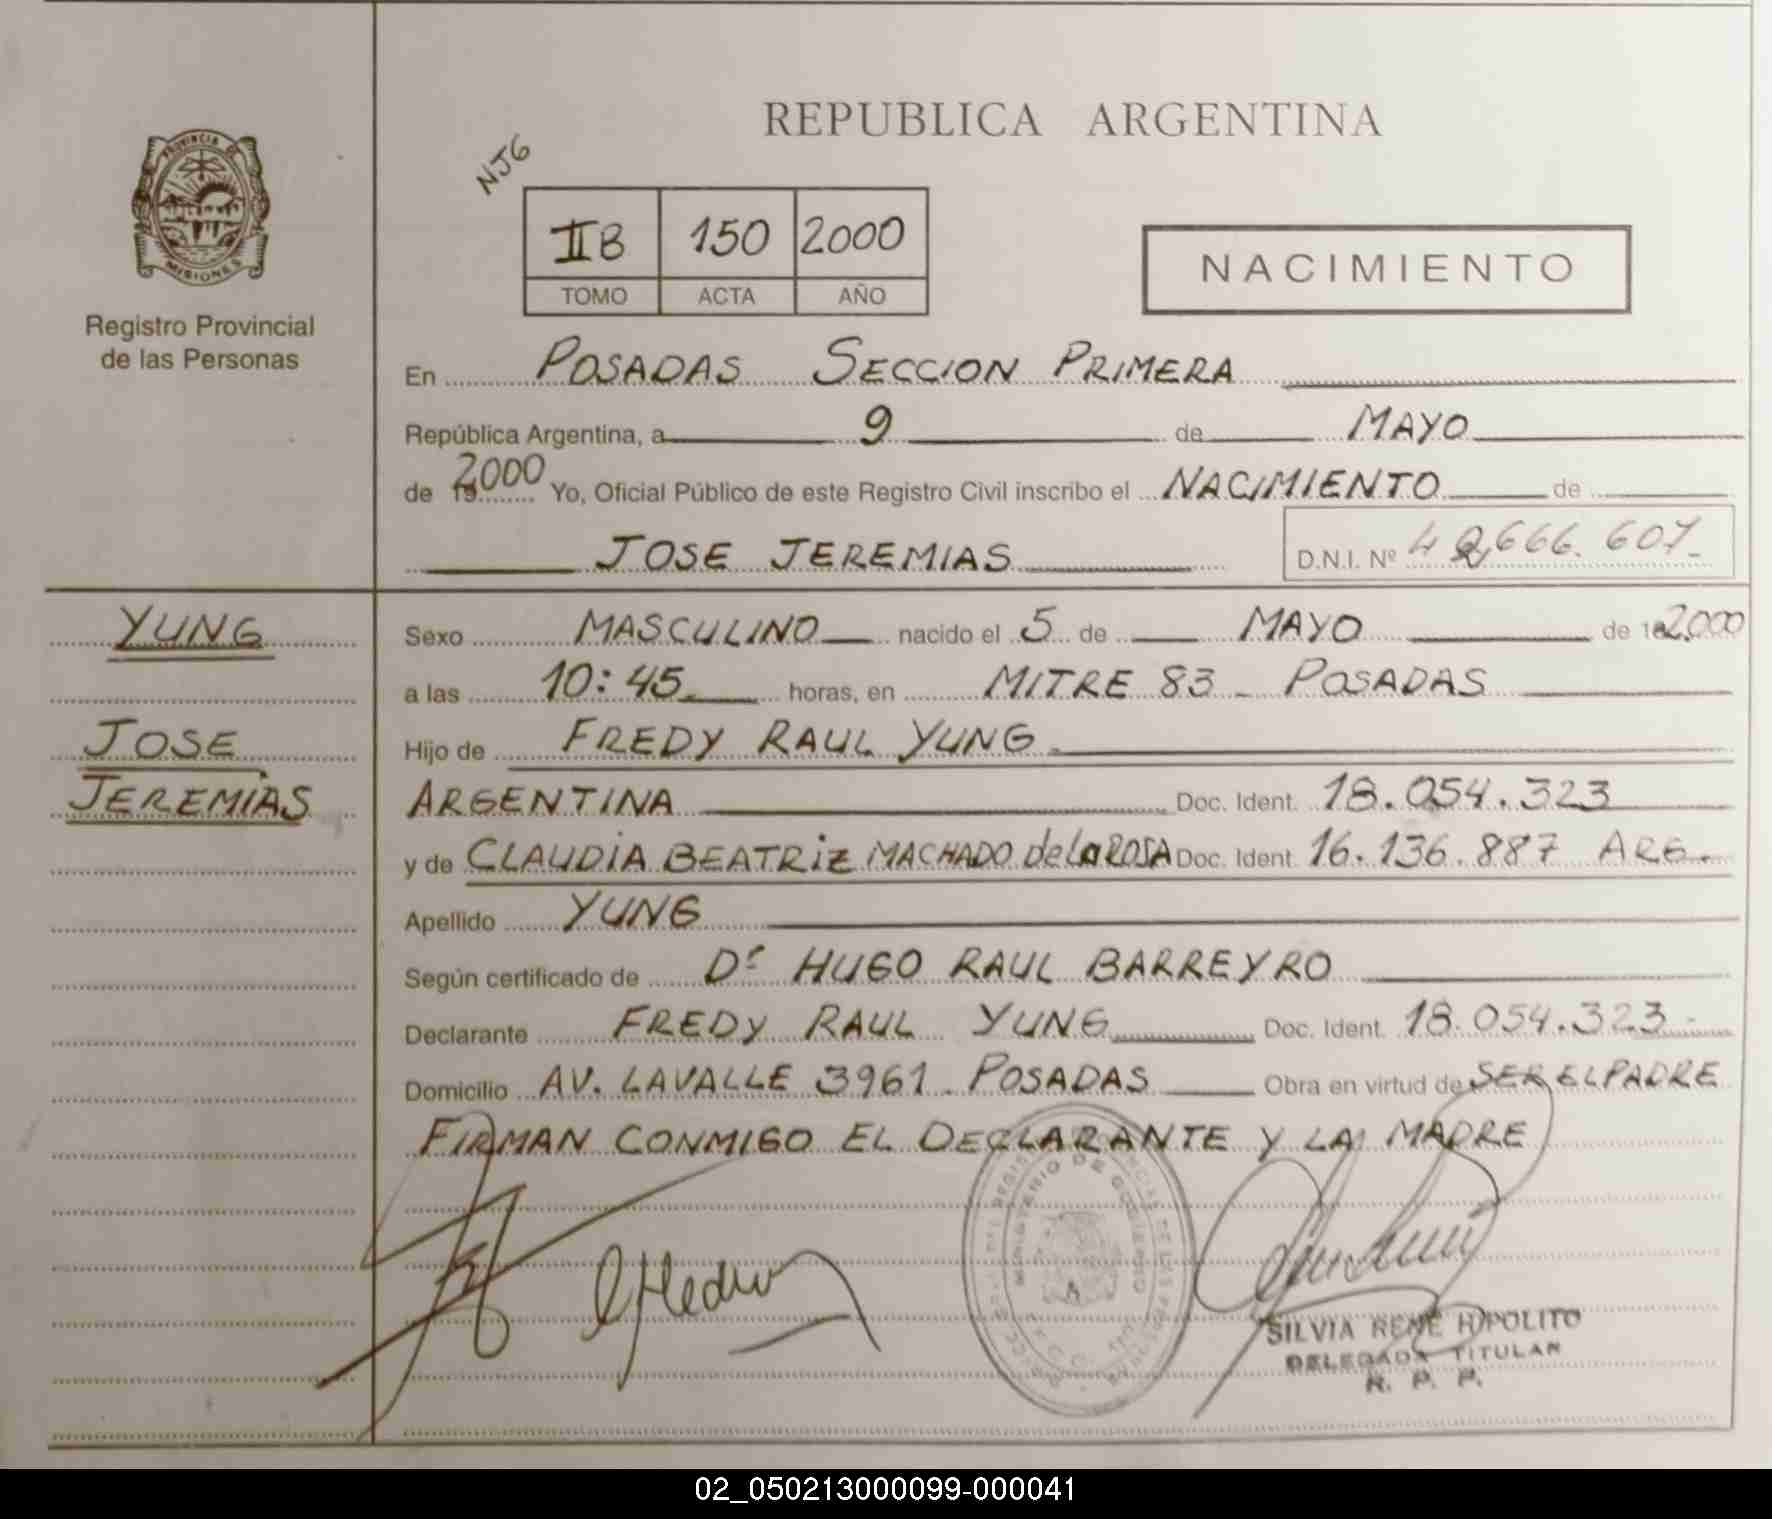 REPUBLICA ARGENTINA
PROVINCIA DE
MISIONES
Registro Provincial
de las Personas
NJ6
IIB 150 2000
TOMO ACTA AÑO
NACIMIENTO
En POSADAS SECCION PRIMERA
República Argentina, a 9 de MAYO
de 19 2000 Yo, Oficial Público de este Registro Civil inscribo el NACIMIENTO de
JOSE JEREMIAS D.N.I. Nº 42,666.607.
YUNG
JOSE
JEREMIAS
Sexo MASCULINO nacido el 5 de MAYO de 2000
a las 10:45 horas, en MITRE 83 - POSADAS
Hijo de FREDY RAUL YUNG
ARGENTINA Doc. Ident. 18.054.323
y de CLAUDIA BEATRIZ MACHADO de LA ROSA Doc. Ident. 16.136.887 ARG.
Apellido YUNG
Según certificado de Dr HUGO RAUL BARREYRO
Declarante FREDY RAUL YUNG Doc. Ident. 18.054.323
Domicilio AV. LAVALLE 3961 - POSADAS Obra en virtud de SER EL PADRE
FIRMAN CONMIGO EL DECLARANTE Y LA MADRE
MINISTERIO DE GOBIERNO
SILVIA RENE HIPOLITO
DELEGADA TITULAR
R. P. P.
02_050213000099-000041